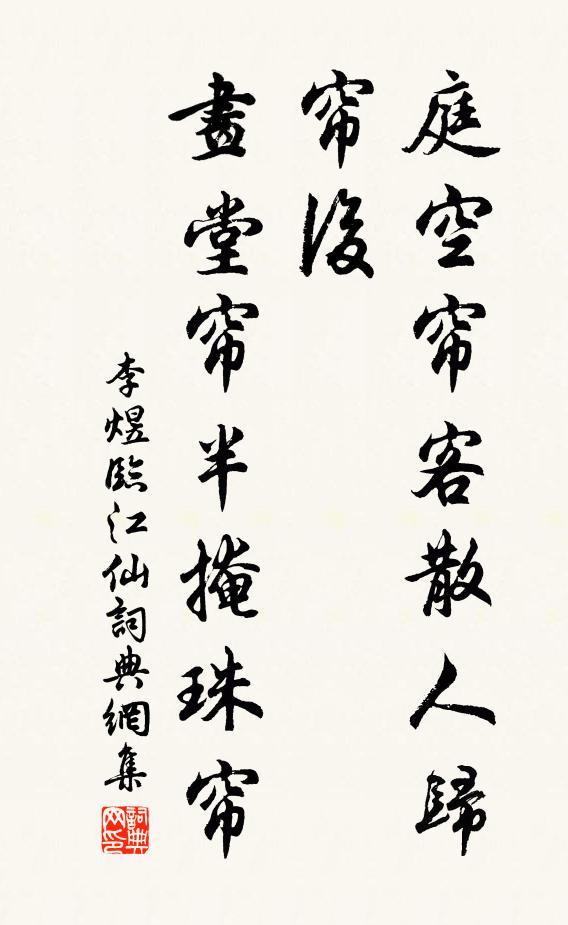 庭空帘客散人歸
帘後
畫堂帘半掩珠帘
李煜臨江仙詞典網集
詞典網印